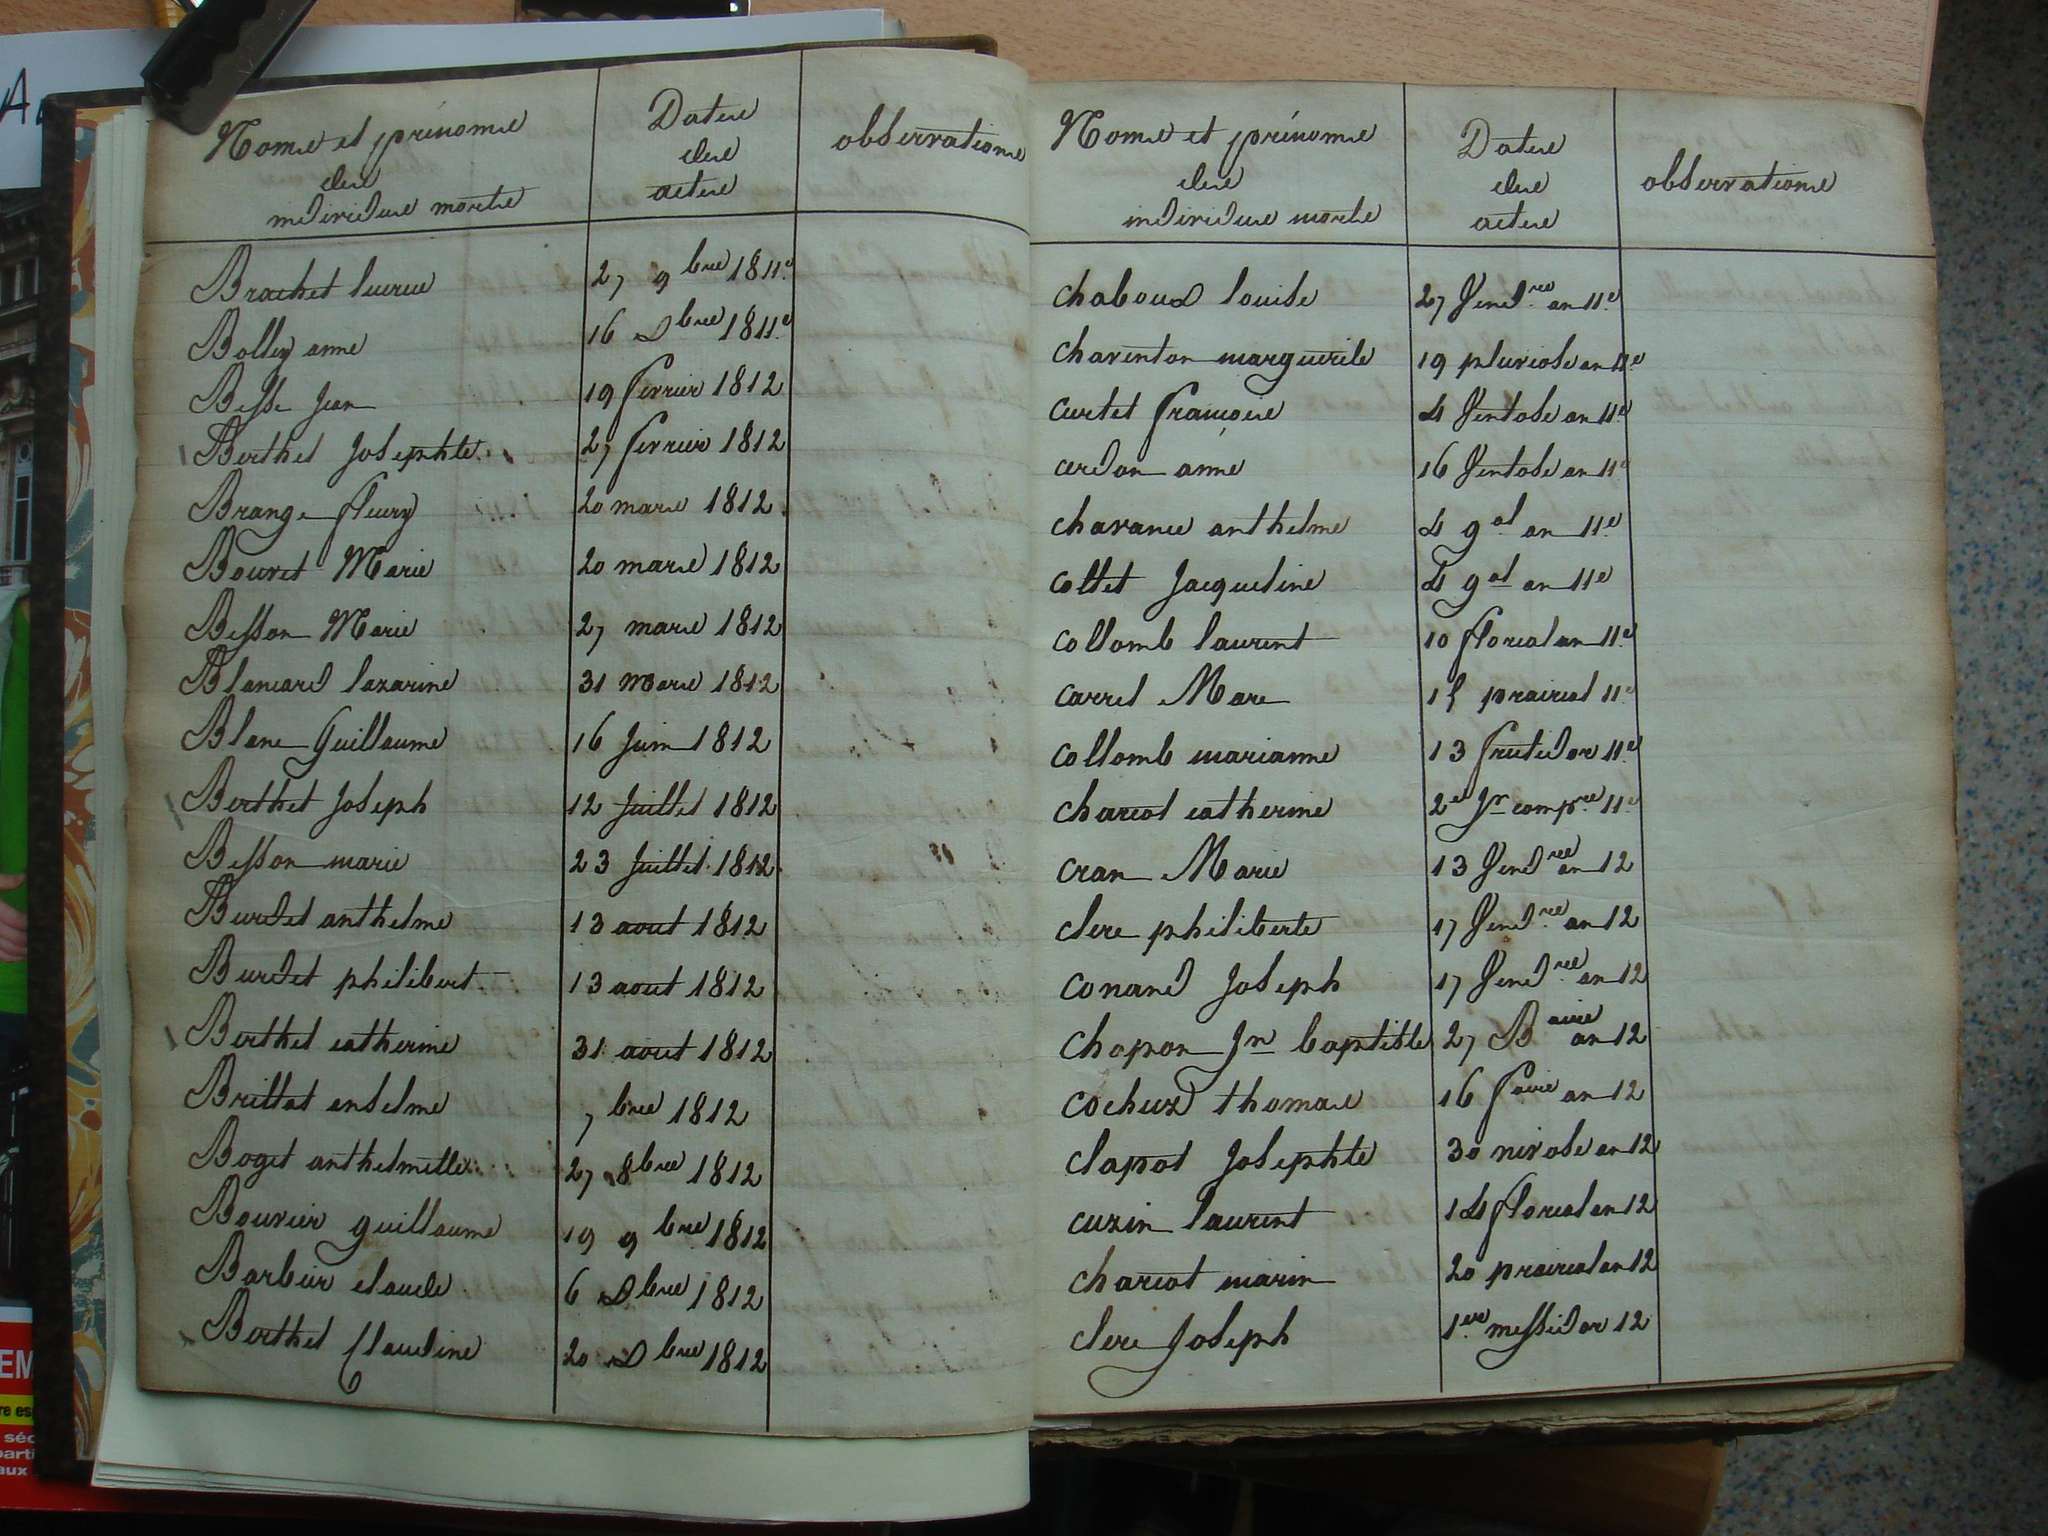 A
Noms et prénoms
des
individus morts
Dates
des
actes
observations
Brachet lucrece 27 9bre 1811e
Bolley anne 16 Dbre 1811e
Besse Jean 19 fevrier 1812
Berthet Josephte 27 fevrier 1812
Brange fleury 20 mars 1812
Bouvet Marie 20 mars 1812
Besson Marie 27 mars 1812
Blancard lazarine 31 Mars 1812
Blanc Guillaume 16 Juin 1812
Berthet Joseph 12 Juillet 1812
Besson marie 23 Juillet 1812
Burdet anthelme 13 aout 1812
Burdet philibert 13 aout 1812
Berthet catherine 31 aout 1812
Brillat anselme 7bre 1812
Boget anthelmette 27 8bre 1812
Bouvier guillaume 19 9bre 1812
Barbier claude 6 Dbre 1812
Berthet Claudine 20 Dbre 1812
Noms et prénoms
des
individus morts
Dates
des
actes
observations
chaboud louise 27 Vend.re an 11e
charenton marguerite 19 pluviose an 11e
curtet françoise 4 Ventose an 11e
cerdon anne 16 Ventose an 11e
chavance anthelme 4 gal an 11e
collet Jacqueline 4 gal an 11e
collomb laurent 10 floreal an 11e
carrel Marc 15 prairial 11e
collomb marianne 13 fructidor 11e
charcot catherine 2e Jr comp.re 11e
cran Marie 13 Vend.re an 12
clerc philiberte 17 Vend.re an 12
conand Joseph 17 Vend.re an 12
chapon Jn baptiste 27 Baire an 12
cocheux thomas 16 faire an 12
clapot Josephte 30 nivose an 12
cuzin laurent 14 floreal an 12
charcot marin 20 prairial an 12
clerc Joseph 1er messidor 12
EM
re esp
séc
parti
aux